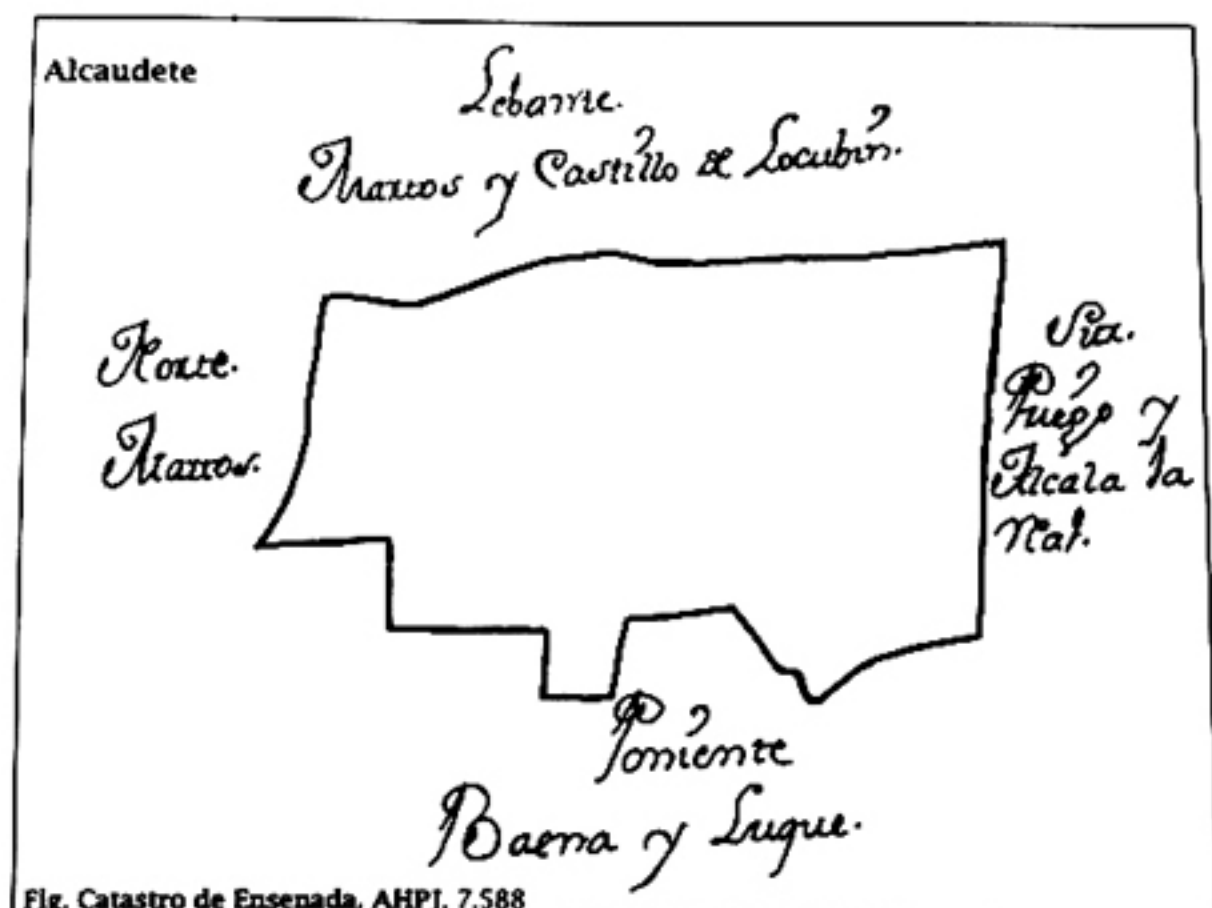 Alcaudete
Lebante.
Martos y Castillo de Locubin.
Norte.
Martos.
Sur.
Priego y
Alcala la
Ral.
Poniente
Baena y Luque.
Fig. Catastro de Ensenada, AHPJ, 7.588